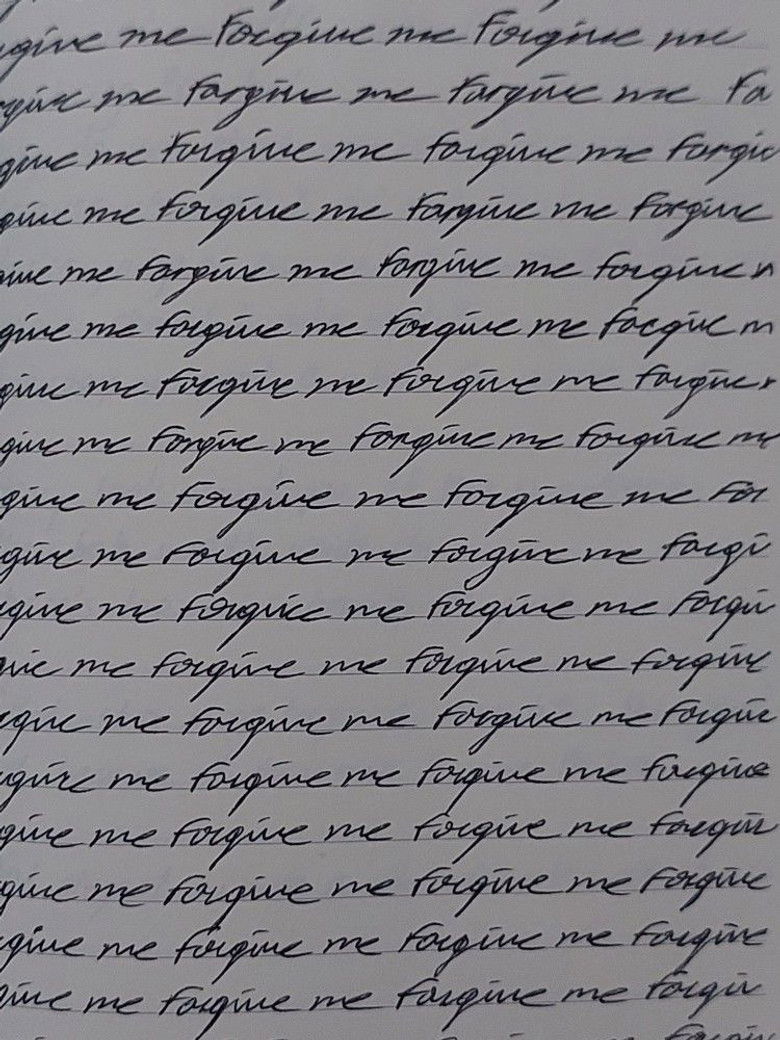 give me Forgive me Forgive me
give me Forgive me Forgive me Fo
give me Forgive me Forgive me Forgiv
give me Forgive me Forgive me Forgive
give me Forgive me Forgive me Forgive m
give me Forgive me Forgive me Forgive m
give me Forgive me Forgive me Forgive
give me Forgive me Forgive me Forgive me
give me Forgive me Forgive me For
give me Forgive me Forgive me Forgi
give me Forgive me Forgive me Forgiv
give me Forgive me Forgive me Forgive
rgive me Forgive me Forgive me Forgive
rgive me Forgive me Forgive me Forgive
give me Forgive me Forgive me Forgive
give me Forgive me Forgive me Forgive
rgive me Forgive me Forgive me Forgive
give me Forgive me Forgive me Forgiv